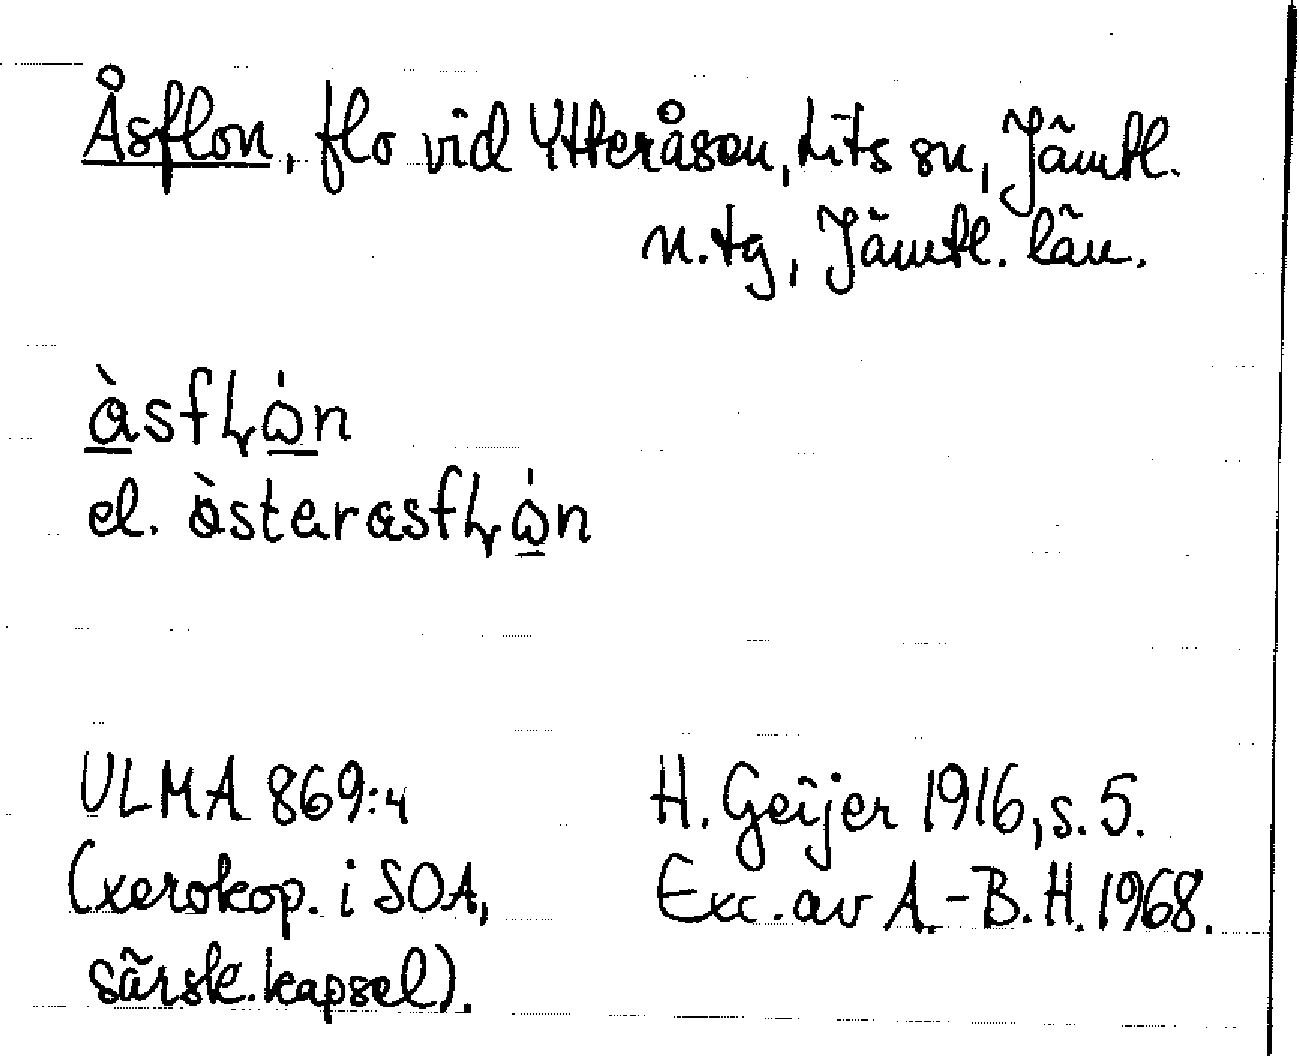 Åsflon, flo vid Ytteråsen, Lits sn, Jämtl.
n.tg, Jämtl. län.
àsfɫω̇n
el. ὼstarasfɫω̇n
ULMA 869:4
H. Geijer 1916, s. 5.
(xerokop. i SOA,
Exc. av A.-B. H. 1968.
särsk. kapsel).